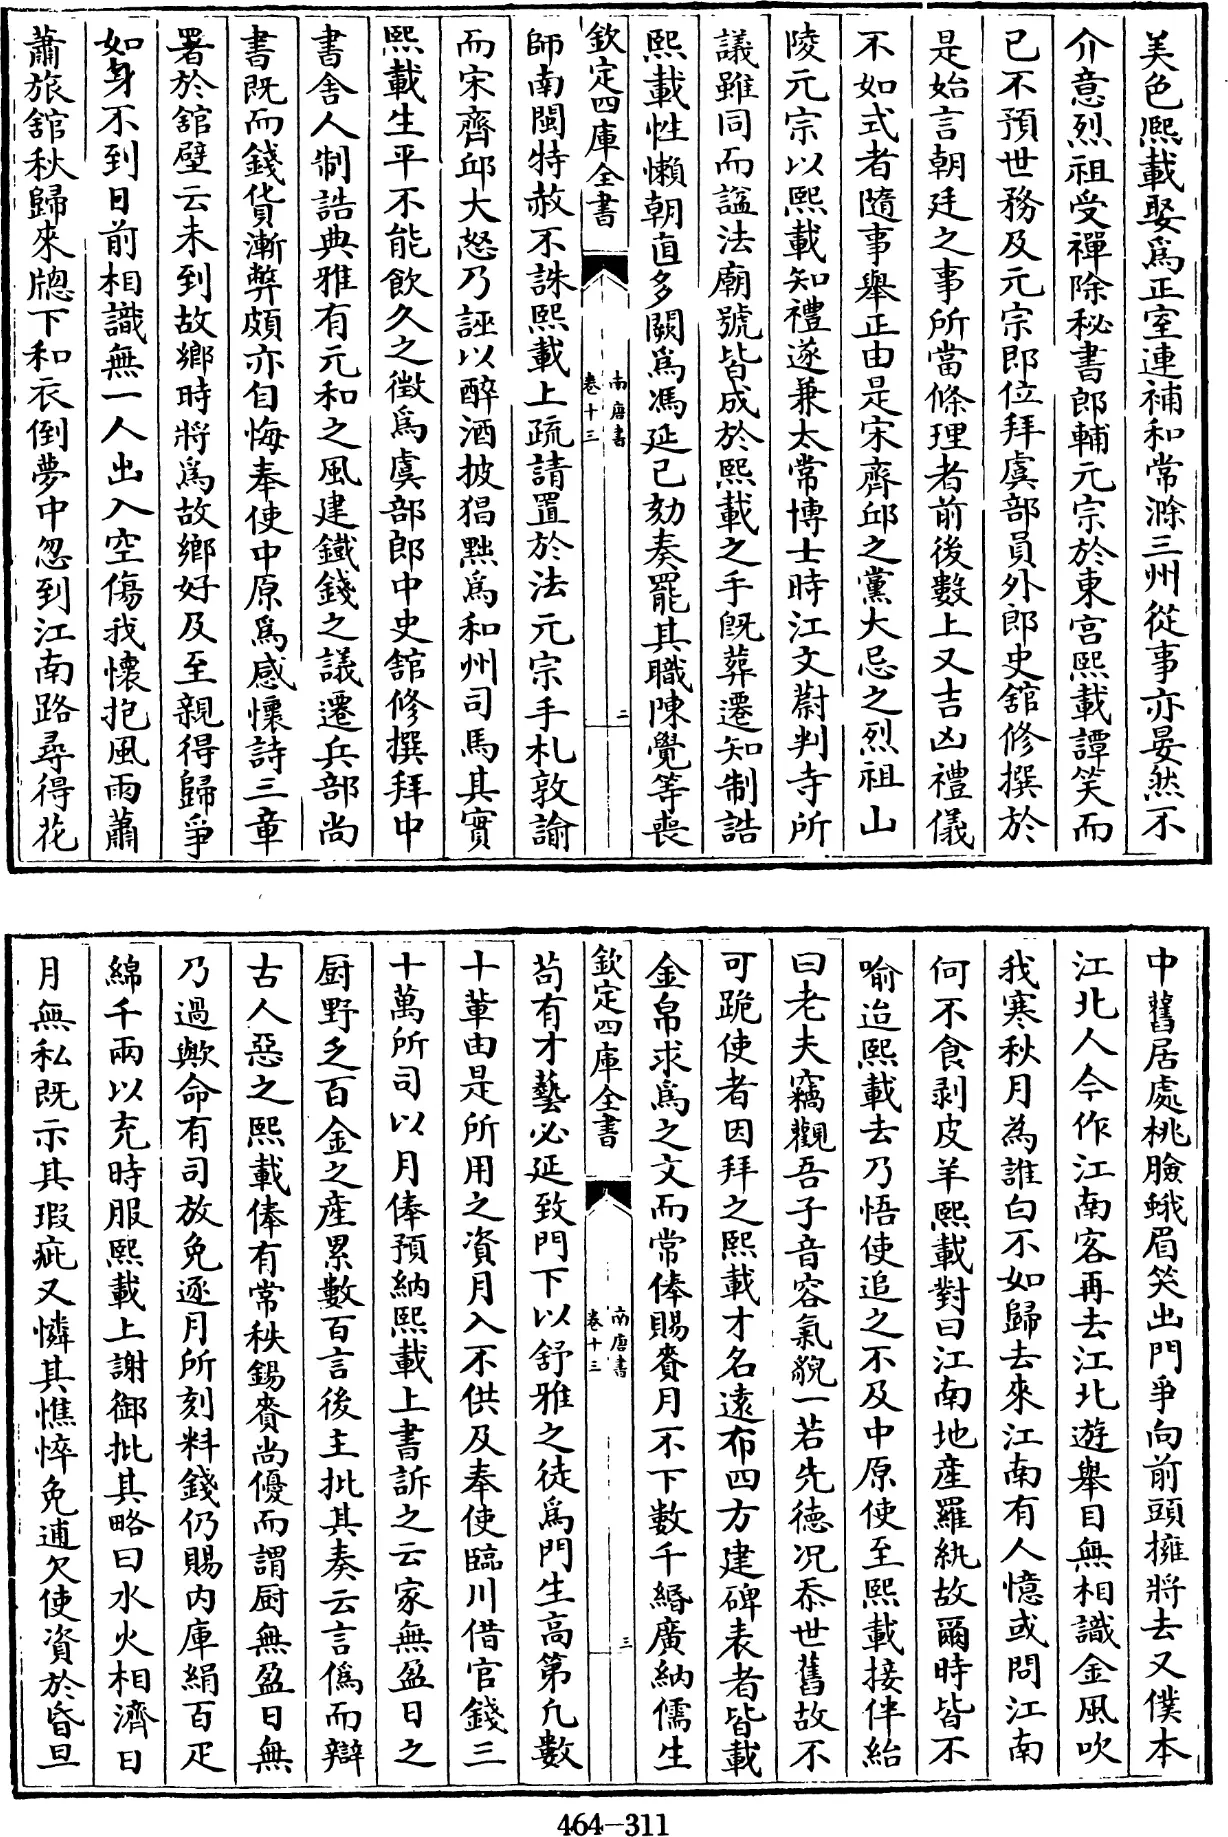 美色熙載娶爲正室連補和常滁三州從事亦晏然不
介意烈祖受禪除秘書郎輔元宗於東宮熙載譚笑而
已不預世務及元宗即位拜虞部員外郎史舘修撰於
是始言朝廷之事所當條理者前後數上又吉凶禮儀
不如式者隨事舉正由是宋齊邱之黨大忌之烈祖山
陵元宗以熙載知禮遂兼太常博士時江文蔚判寺所
議雖同而謚法廟號皆成於熙載之手旣葬遷知制誥
熙載性懶朝直多闕爲馮延已劾奏罷其職陳覺等喪
欽定四庫全書
南唐書
卷十三
二
師南閩特赦不誅熙載上疏請置於法元宗手札敦諭
而宋齊邱大怒乃誣以醉酒披猖黜爲和州司馬其實
熙載生平不能飲久之徵爲虞部郎中史舘修撰拜中
書舍人制誥典雅有元和之風建鐵錢之議遷兵部尚
書既而錢貨漸弊頗亦自悔奉使中原爲感懷詩三章
署於舘壁云未到故鄉時將爲故鄉好及至親得歸爭
如身不到日前相識無一人出入空傷我懷抱風雨蕭
蕭旅舘秋歸來牎下和衣倒夢中忽到江南路尋得花
中舊居處桃臉蛾眉笑出門爭向前頭擁將去又僕本
江北人今作江南客再去江北遊舉目無相識金風吹
我寒秋月為誰白不如歸去來江南有人憶或問江南
何不食剥皮羊熙載對曰江南地產羅紈故爾時皆不
喻迨熙載去乃悟使追之不及中原使至熙載接伴紿
曰老夫竊觀吾子音容氣貌一若先德况忝世舊故不
可跪使者因拜之熙載才名遠布四方建碑表者皆載
金帛求爲之文而常俸賜賚月不下數千緡廣納儒生
欽定四庫全書
南唐書
卷十三
三
苟有才藝必延致門下以舒雅之徒爲門生高第凡數
十輩由是所用之資月入不供及奉使臨川借官錢三
十萬所司以月俸預納熙載上書訴之云家無盈日之
厨野乏百金之產累數百言後主批其奏云言僞而辯
古人惡之熙載俸有常秩錫賚尚優而謂厨無盈日無
乃過歟命有司放免逐月所刻料錢仍賜内庫絹百疋
綿千兩以充時服熙載上謝御批其略曰水火相濟日
月無私既示其瑕疵又憐其憔悴免逋欠使資於昏旦
464-311